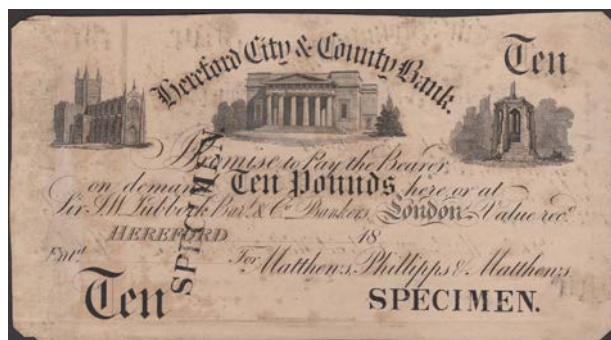 Hereford City & County Bank.
Ten
Promise to Pay the Bearer
on demand Ten Pounds here or at
Sir J.W. Lubbock Bart. & Co. Bankers, London Value recd.
HEREFORD 18
Entd.
For Matthews, Phillipps & Matthews.
Ten
SPECIMEN
SPECIMEN.